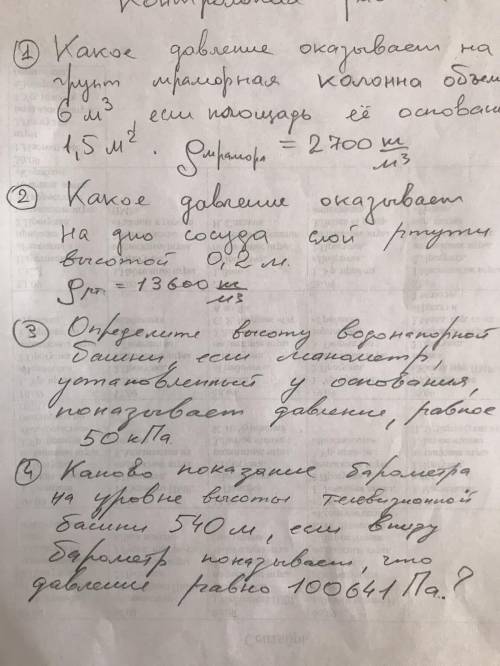 Контрольная
① Какое давление оказывает на
грунт мраморная колонна объем
6 м³, если площадь её основан
1,5 м². ρмрамора = 2700 кг/м³
② Какое давление оказывает
на дно сосуда слой ртути
высотой 0,2 м.
ρрт = 13600 кг/м³
③ Определите высоту водонапорной
башни, если манометр,
установленный у основания,
показывает давление, равное
50 кПа
④ Каково показание барометра
на уровне высоты телевизионной
башни 540 м, если внизу
барометр показывает, что
давление равно 100641 Па.?